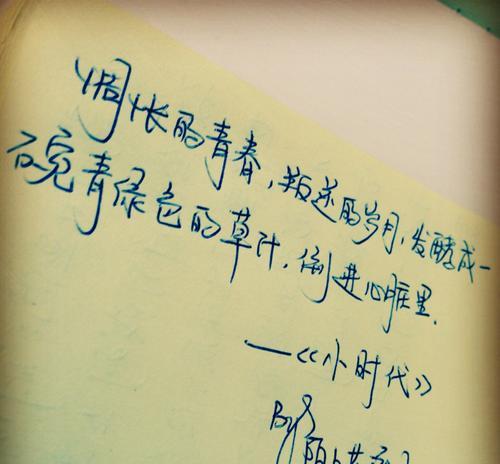 惆怅的青春，叛逆的岁月，发酵成一
碗青绿色的草汁，倒进心脏里.
—《小时代》
By